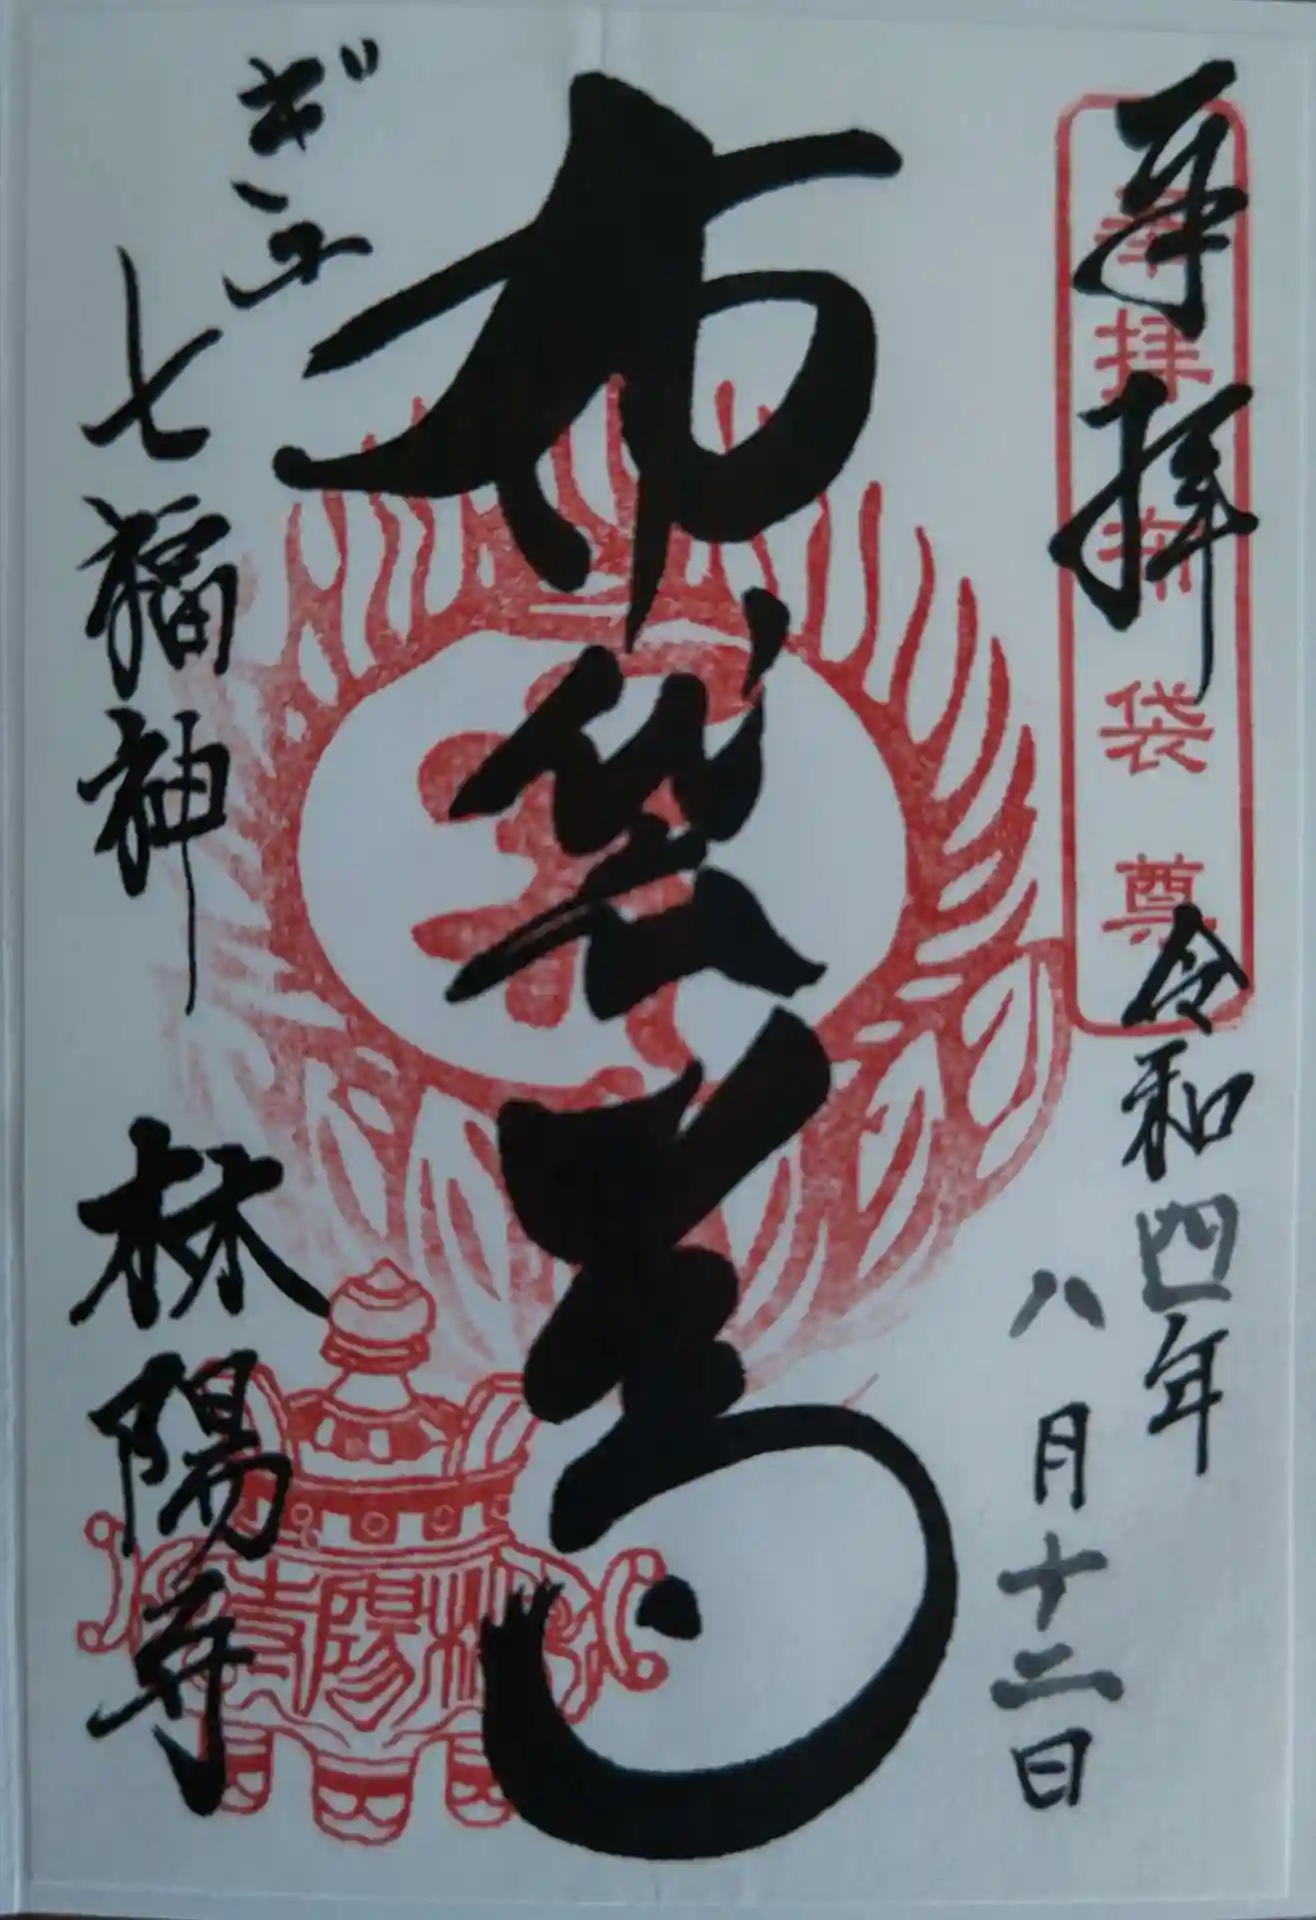 奉拝
奉拝布袋尊
令和四年
八月十二日
布袋尊
ぎふ
七福神
林陽寺
林陽寺